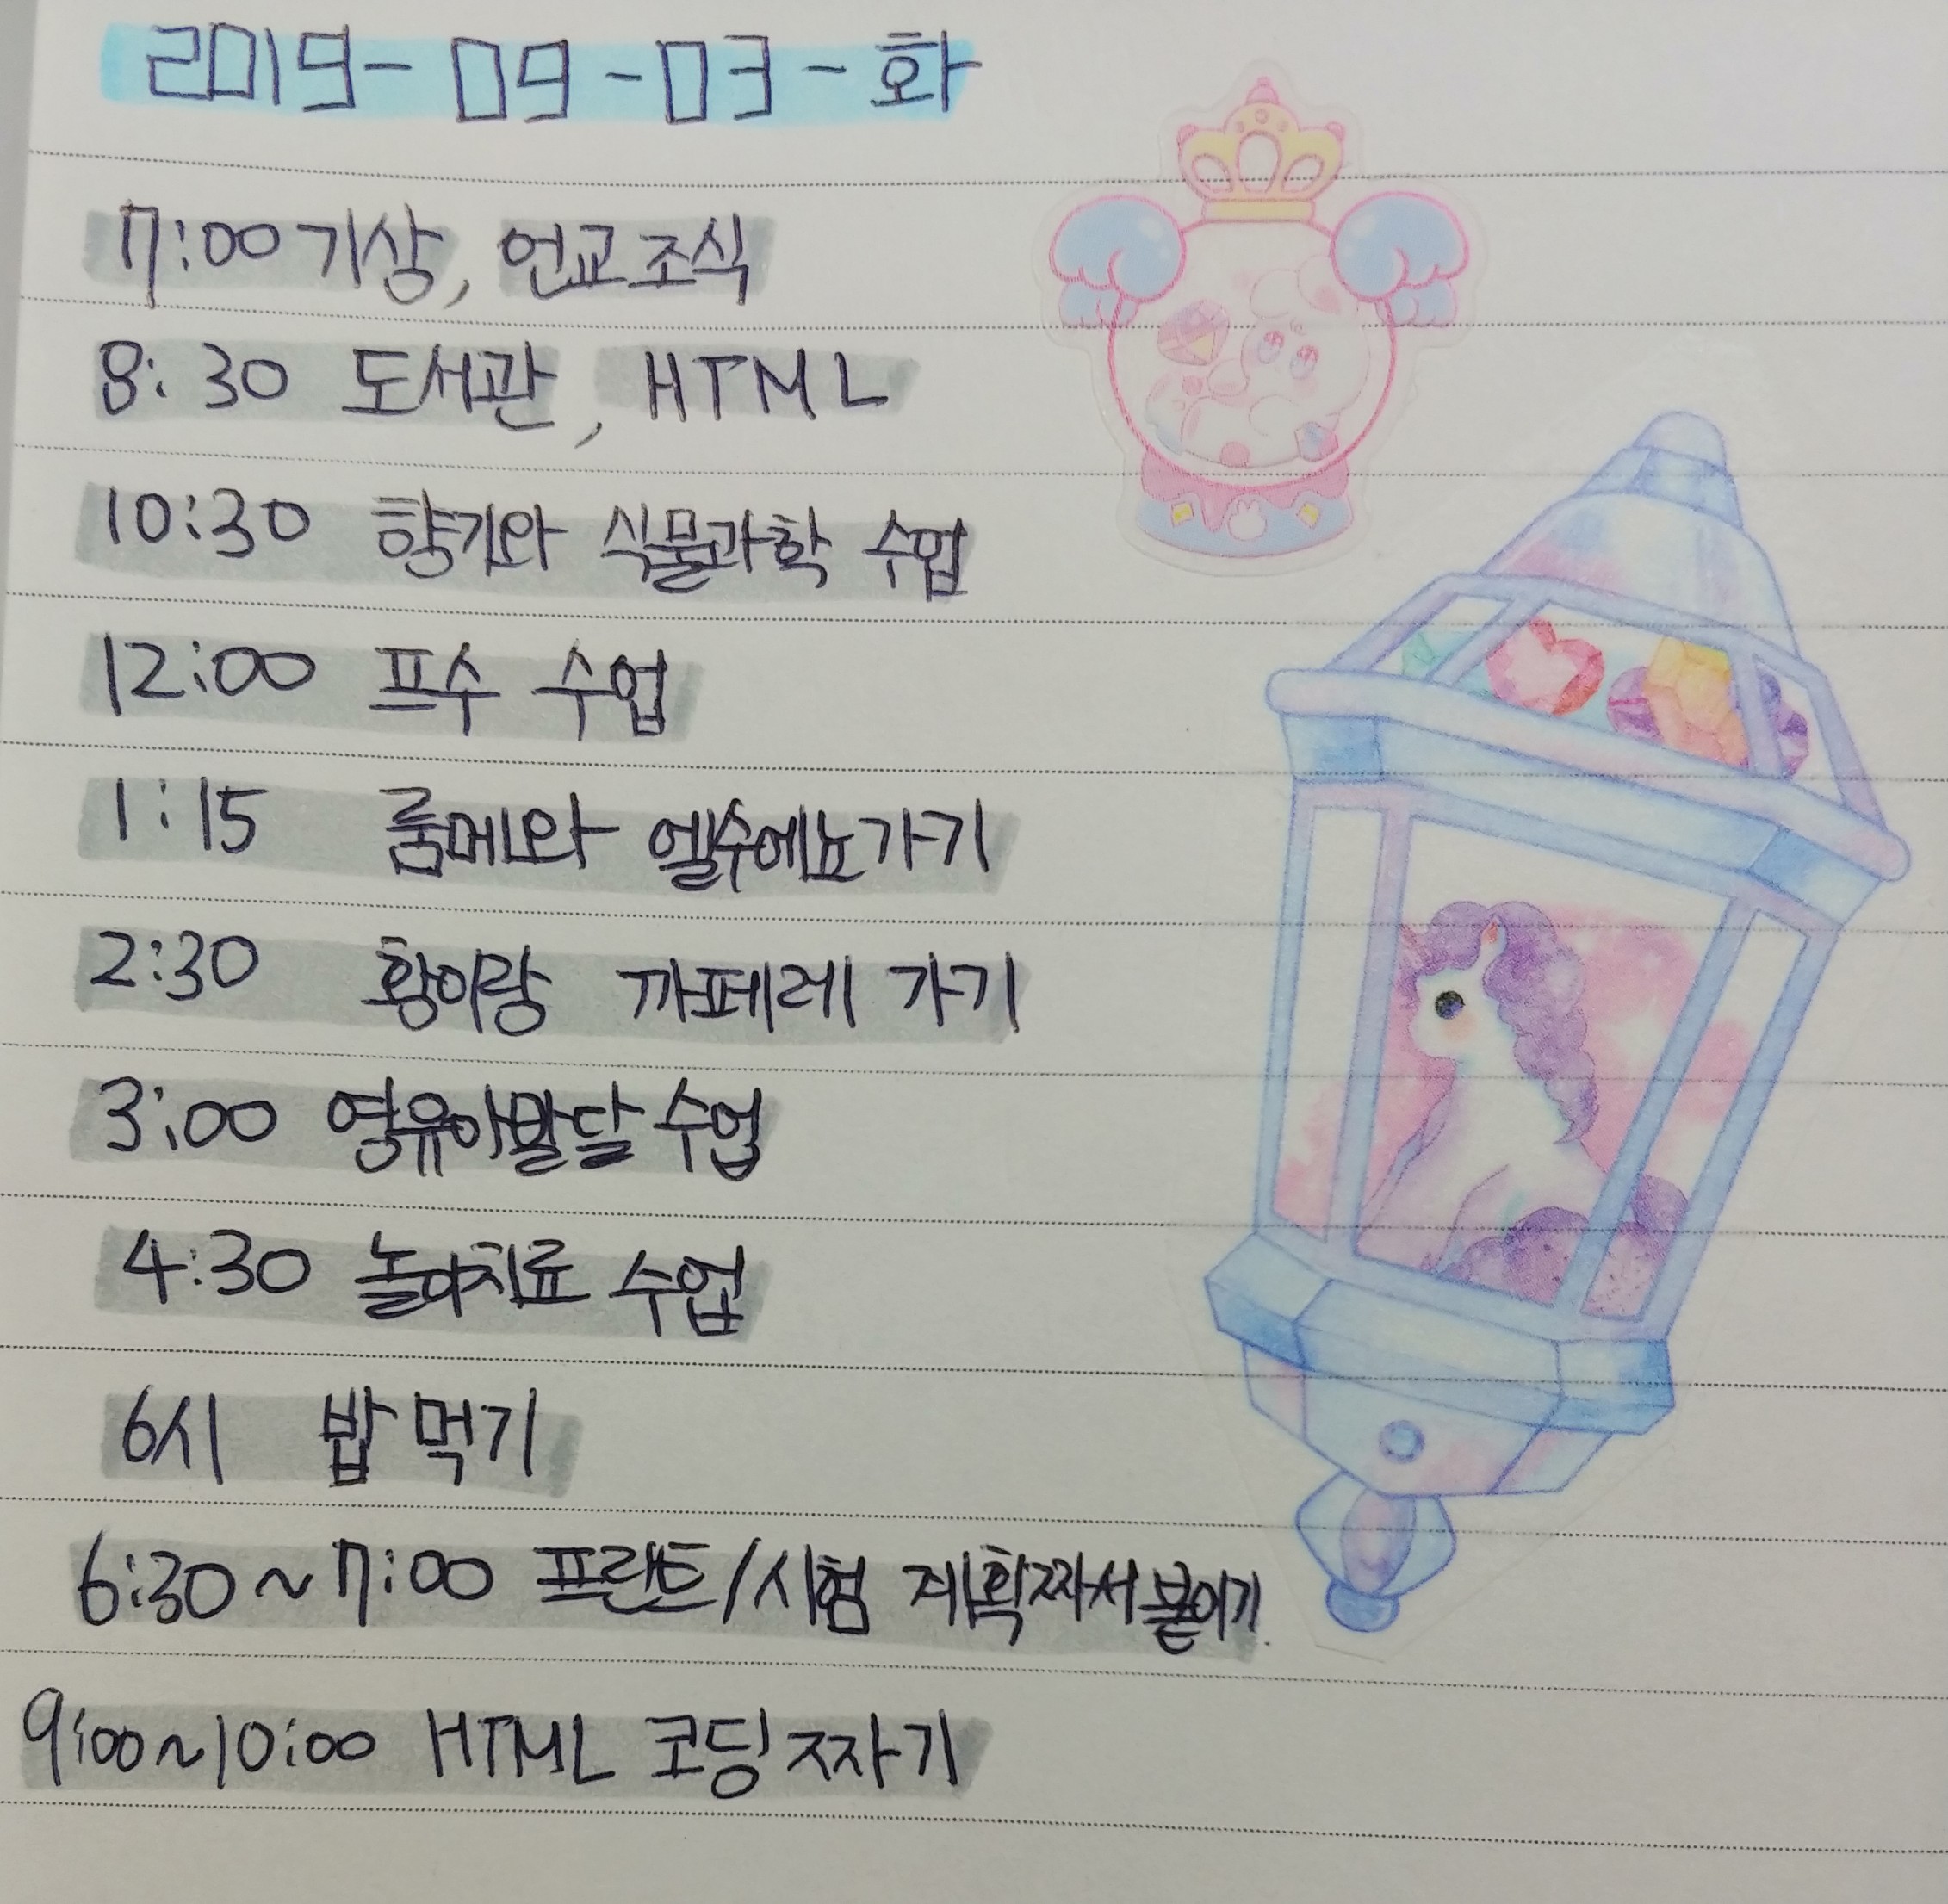 2019-09-03-화
7:00 기상, 언교조식
8:30 도서관, HTML
10:30 향기와 식물과학 수업
12:00 프수 수업
1:15 룸메와 엘수에뇨가기
2:30 황이랑 까페레 가기
3:00 영유아발달 수업
4:30 놀이치료 수업
6시 밥 먹기
6:30~7:00 프린트/시험 계획짜서 붙이기.
9:00~10:00 HTML 코딩 짜기